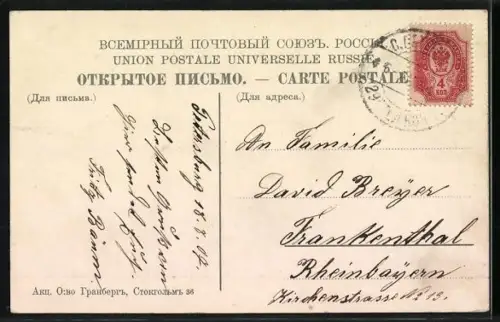 ВСЕМІРНЫЙ ПОЧТОВЫЙ СОЮЗЪ. РОССІЯ
UNION POSTALE UNIVERSELLE RUSSIE
ОТКРЫТОЕ ПИСЬМО. — CARTE POSTALE
(Для письма.)
(Для адреса.)
Petersburg 18.8.07.
Fritz Baum.
An Familie
David Breyer
Frankenthal
Rheinbayern
Kirchenstrasse No 19.
4
КОП
Акц. О-во Гранбергъ, Стокгольмъ 36